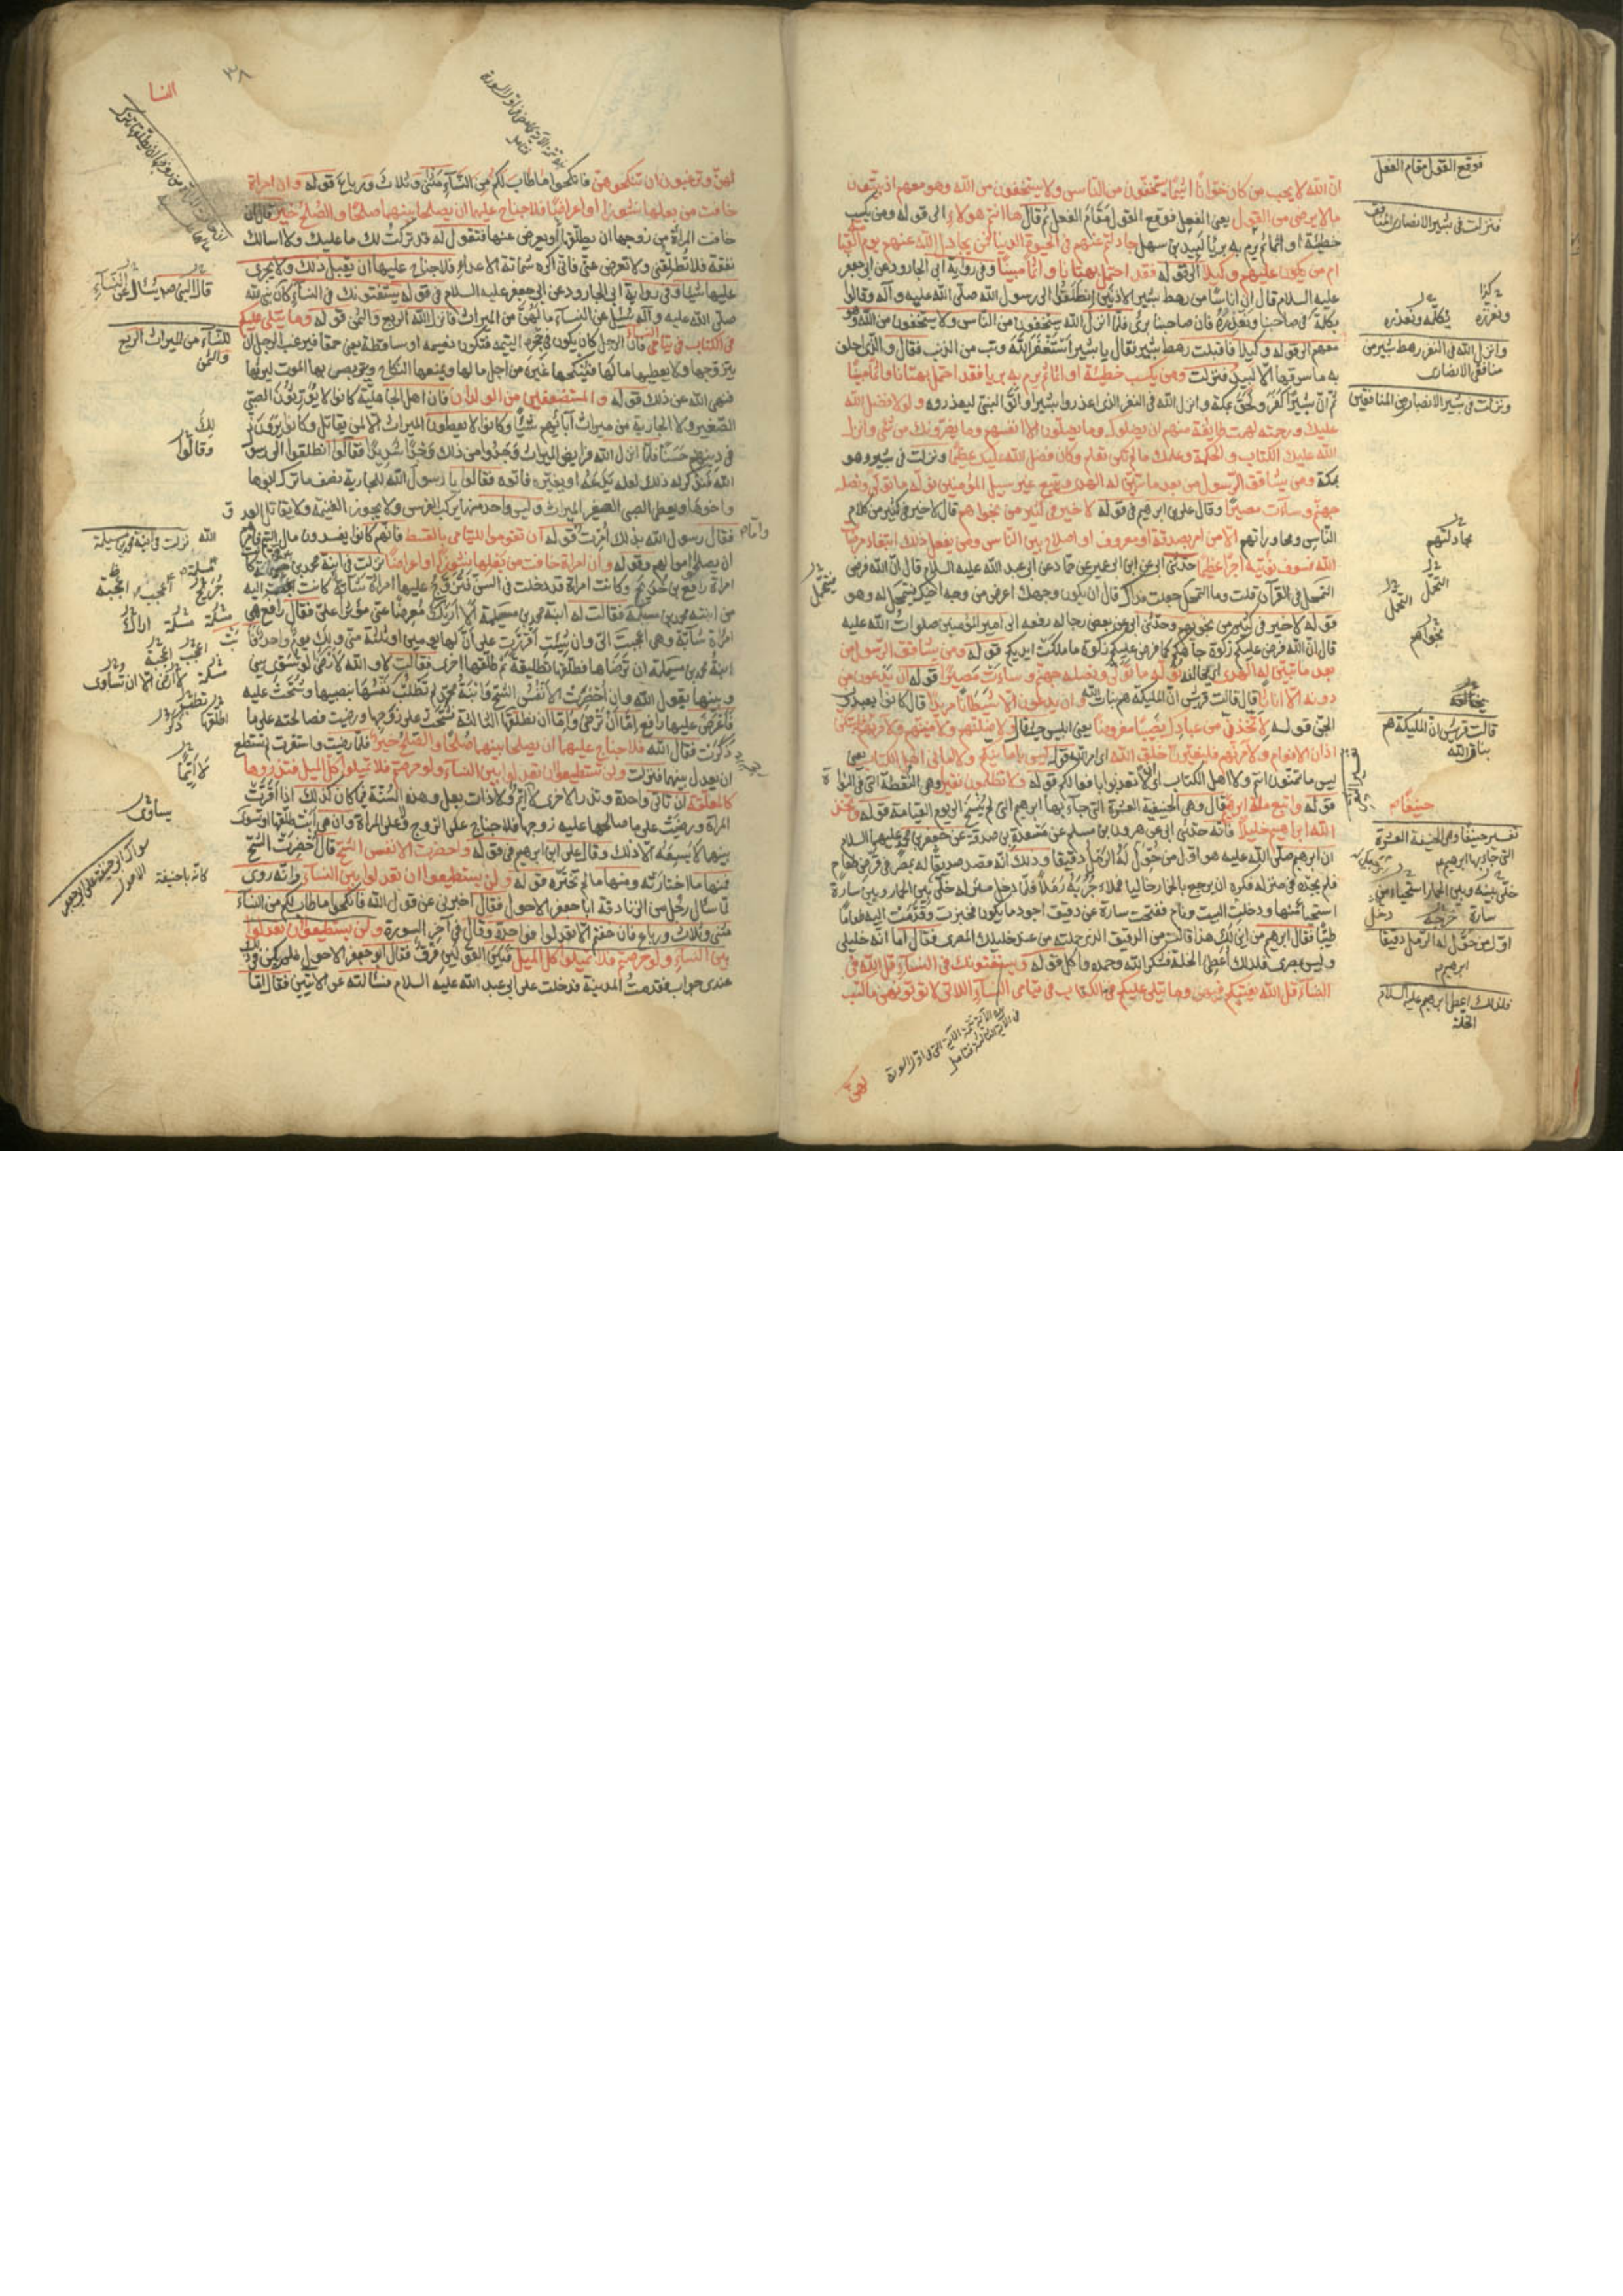 ان الله لا يحب من كان خوانا اثيما يستخفون من الناس ولا يستخفون من الله وهو معهم اذ يبيتون
ما لا يرضى من القول يعنى الفعل فوقع القول مقام الفعل ثم قال ها انتم هولاء الى قوله ومن يكسب
خطيئة او اثما ثم يرم به بريا لبيد بن سهل جادلتم عنهم فى الحيوة الدنيا فمن يجادل الله عنهم يوم القيمة
ام من يكون عليهم وكيلا الى قوله فقد احتمل بهتانا واثما مبينا وفى رواية ابى الجارود عن ابى جعفر
عليه السلام قال ان اناسا من رهط بشير الادنين انطلقوا الى رسول الله صلى الله عليه وآله وقالوا
نكلمه فى صاحبنا ونعذره فان صاحبنا برئ فلما انزل الله يستخفون من الناس ولا يستخفون من الله وهو
معهم الى قوله وكيلا فاقبلت رهط بشير فقال يا بشير استغفر الله وتب من الذنب فقال والذى احلف
به ما سرقها الا لبيد فنزلت ومن يكسب خطيئة او اثما ثم يرم به بريا فقد احتمل بهتانا واثما مبينا
ثم ان بشيرا كفر ولحق بمكة وانزل الله فى النفر الذين اعذروا بشيرا واتوا النبى ليعذروه ولولا فضل الله
عليك ورحمته لهمت طايفة منهم ان يضلوك وما يضلون الا انفسهم وما يضرونك من شئ وانزل
الله عليك الكتاب والحكمة وعلمك ما لم تكن تعلم وكان فضل الله عليك عظيما ونزلت فى بشير وهو
بمكة ومن يشاقق الرسول من بعد ما تبين له الهدى ويتبع غير سبيل المؤمنين نوله ما تولى ونصله
جهنم وساءت مصيرا وقال على بن ابرهيم فى قوله لا خير فى كثير من نجواهم قال لا خير فى كثير من كلام
الناس ومحاوراتهم الا من امر بصدقة او معروف او اصلاح بين الناس ومن يفعل ذلك ابتغاء مرضات
الله فسوف نؤتيه اجرا عظيما حدثنى ابى عن ابن ابى عمير عن حماد عن ابى عبد الله عليه السلام قال ان الله فرض
التمحل فى القرآن قلت وما التمحل جعلت فداك قال ان يكون وجهك اعرض من وجه اخيك فتمحل له وهو
قوله لا خير فى كثير من نجويهم وحدثنى ابى عن بعض رجاله رفعه الى امير المؤمنين صلوات الله عليه
قال ان الله فرض عليكم زكوة جاهكم كما فرض عليكم زكوة ما ملكت ايديكم قوله ومن يشاقق الرسول من
بعد ما تبين له الهدى اى يخالفه نوله ما تولى ونصله جهنم وساءت مصيرا قوله ان يدعون من
دونه الا اناثا قال قالت قريش ان المليكة هم بنات الله وان يدعون الا شيطانا مريدا قال كانوا يعبدون
الجن قوله لاتخذن من عبادك نصيبا مفروضا يعنى ابليس حيث قال ولاضلنهم ولامنينهم ولامرنهم فليبتكن
اذان الانعام ولامرنهم فليغيرن خلق الله اى امر الله قوله ليس بامانيكم ولا امانى اهل الكتاب يعنى
ليس ما تتمنون انتم ولا اهل الكتاب اى لا تعذبوا بافعالكم قوله ولا تظلمون نقيرا وهى النقطة التى فى النواة
قوله واتبع ملة ابرهيم قال وهى الحنيفية العشرة التى جاء بها ابرهيم التى لم تنسخ الى يوم القيامة قوله واتخذ
الله ابراهيم خليلا فانه حدثنى ابى عن هرون بن مسلم عن مسعدة بن صدقة عن جعفر بن محمد عليهما السلام
ان ابرهيم صلى الله عليه هو اول من حول له الرمل دقيقا وذلك انه قصد صديقا له بمصر فى قرض طعام
فلم يجده فى منزله فكره ان يرجع بالحمار خاليا فملاء جرابه رملا فلما دخل منزله خلى بين الحمار وبين سارة
استحيا منها ودخل البيت ونام ففتحت سارة عن دقيق اجود ما يكون فخبزت وقدمت اليه طعاما
طيبا فقال ابرهيم من اين لك هذا قالت من الدقيق الذى حملته من عند خليلك المصرى فقال اما انه خليلى
وليس بمصرى فلذلك اعطى الخلة فشكر الله وحمده واكل قوله ويستفتونك فى النساء قل الله فى
النساء قل الله يفتيكم فيهن وما يتلى عليكم فى الكتاب فى يتامى النساء اللاتى لا تؤتونهن ما كتب
لهن
فوقع القول مقام الفعل
فنزلت فى بشير الانصارى المنافق
نكلمه ونعذره
وانزل الله فى النفر رهط بشير من
منافقى الانصارى
ونزلت فى بشير الانصارى من المنافقين
مجادلتهم
التمحل
نجواكم
يخالفه
قالت قريش ان المليكة هم
بنات الله
حنيفا
تفسير حنيفا وهى الحنيفية العشرة
التى جاء بها ابرهيم
خلى بينه وبين الحمار استحياء من
سارة خرجت دخل
اول من حول له الرمل دقيقا
ابرهيم
فلذلك اعطى ابرهيم عليه السلام
الخلة
النسا
٣٨
لهن وترغبون ان تنكحوهن فانكحوا ما طاب لكم من النساء مثنى وثلاث ورباع قوله وان امراة
خافت من بعلها نشوزا او اعراضا فلا جناح عليهما ان يصلحا بينهما صلحا والصلح خير قال ان
خافت المراة من زوجها ان يطلقها او يعرض عنها فتقول له قد تركت لك ما عليك ولا اسالك
نفقة فلا تطلقنى ولا تعرض عنى فانى اكره شماتة الاعداء فلا جناح عليها ان يقبل ذلك ولا يجرى
عليها شيا وفى رواية ابى الجارود عن ابى جعفر عليه السلام فى قوله يستفتونك فى النساء فان نبى الله
صلى الله عليه وآله سئل عن النساء ما لهن من الميراث فانزل الله الربع والثمن قوله وما يتلى عليكم
فى الكتاب فى يتامى النساء فان الرجل كان يكون فى حجره اليتيمة فتكون دميمة او ساقطة يعنى حمقا فيرغب الرجل ان
يتزوجها ولا يعطيها مالها فينكحها غيره من اجل مالها ويمنعها النكاح ويتربص بها الموت ليرثها
فنهى الله عن ذلك قوله والمستضعفين من الولدان فان اهل الجاهلية كانوا لا يورثون الصبى
الصغير ولا الجارية من ميراث آبائهم شيا وكانوا لا يعطون الميراث الا لمن يقاتل وكانوا يرون ذلك
فى دينهم حسنا فلما انزل الله فرايض الميراث وجدوا من ذلك وجدا شديدا فقالوا انطلقوا الى رسول
الله فنذكر له ذلك لعله يدعه او يغيره فاتوه فقالوا يا رسول الله للجارية نصف ما ترك ابوها
واخوها ويعطى الصبى الصغير الميراث وليس واحد منهما يركب الفرس ولا يحوز الغنيمة ولا يقاتل العدو
فقال رسول الله بذلك امرت قوله ان تقوموا لليتامى بالقسط فانهم كانوا يفسدون مال اليتيم فامرهم
ان يصلحوا اموالهم وقوله وان امراة خافت من بعلها نشوزا او اعراضا نزلت فى ابنة محمد بن مسلمة كانت
امراة رافع بن خديج وكانت امراة قد دخلت فى السن فتزوج عليها امراة شابة كانت اعجب اليه
من ابنة محمد بن مسلمة فقالت له ابنة محمد بن مسلمة الا اريك معرضا عنى مؤثرا على فقال رافع هى
امراة شابة وهى اعجب الى وان شئت اقررت على ان لها يومين او ثلثة منى ولك يوم واحد فابت
ابنة محمد بن مسلمة ان ترضاها فطلقها تطليقة ثم طلقها اخرى فقالت لا والله لا ارضى او تسوى بينى
وبينها يقول الله وان احضرت الانفس الشح فابنة محمد لم تطلب نفسها بنصيبها وشحت عليه
فاعرض عليها رافع اما ان ترضى واما ان يطلقها الثالثة فشحت على زوجها ورضيت فصالحته على ما
ذكرت فقال الله فلا جناح عليهما ان يصلحا بينهما صلحا والصلح خير فلما رضيت واستقرت لم يستطع
ان يعدل بينهما فنزلت ولن تستطيعوا ان تعدلوا بين النساء ولو حرصتم فلا تميلوا كل الميل فتذروها
كالمعلقة ان تاتى واحدة وتذر الاخرى لا ايم ولا ذات بعل وهذه السنة فيما كان كذلك اذا اقرت
المراة ورضيت على ما صالحها عليه زوجها فلا جناح على الزوج ولا على المراة وان هى ابت طلقها او تسوى
بينهما لا يسعه الا ذلك وقال على بن ابرهيم فى قوله واحضرت الانفس الشح قال احضرت الشح
فمنها ما اختارته ومنها ما لم تختره قوله ولن تستطيعوا ان تعدلوا بين النساء وانه روى
انه سال رجل من الزنادقة ابا جعفر الاحول فقال اخبرنى عن قول الله فانكحوا ما طاب لكم من النساء
مثنى وثلاث ورباع فان خفتم الا تعدلوا فواحدة وقال فى آخر السورة ولن يستطيعوا ان تعدلوا
بين النساء ولو حرصتم فلا تميلوا كل الميل فبين القولين فرق فقال ابو جعفر الاحول فلم يكن فى ذلك
عندى جواب فقدمت المدينة فدخلت على ابى عبد الله عليه السلام فسالته عن الايتين فقال اما
قال النبى ص سئل عن النساء
للنساء من الميراث الربع
والثمن
ذلك
وقالوا
نزلت فى ابنة محمد بن مسلمة
يساوى
كانه باحنيفة